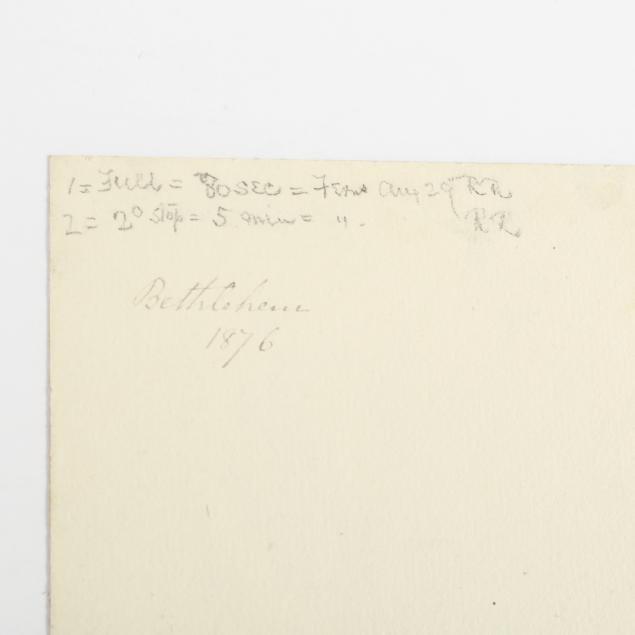 1 = Full = 80 SEC = Ferns Aug 29 RR
2 = 2º Stop = 5 min = " . RR
Bethlehem
1876